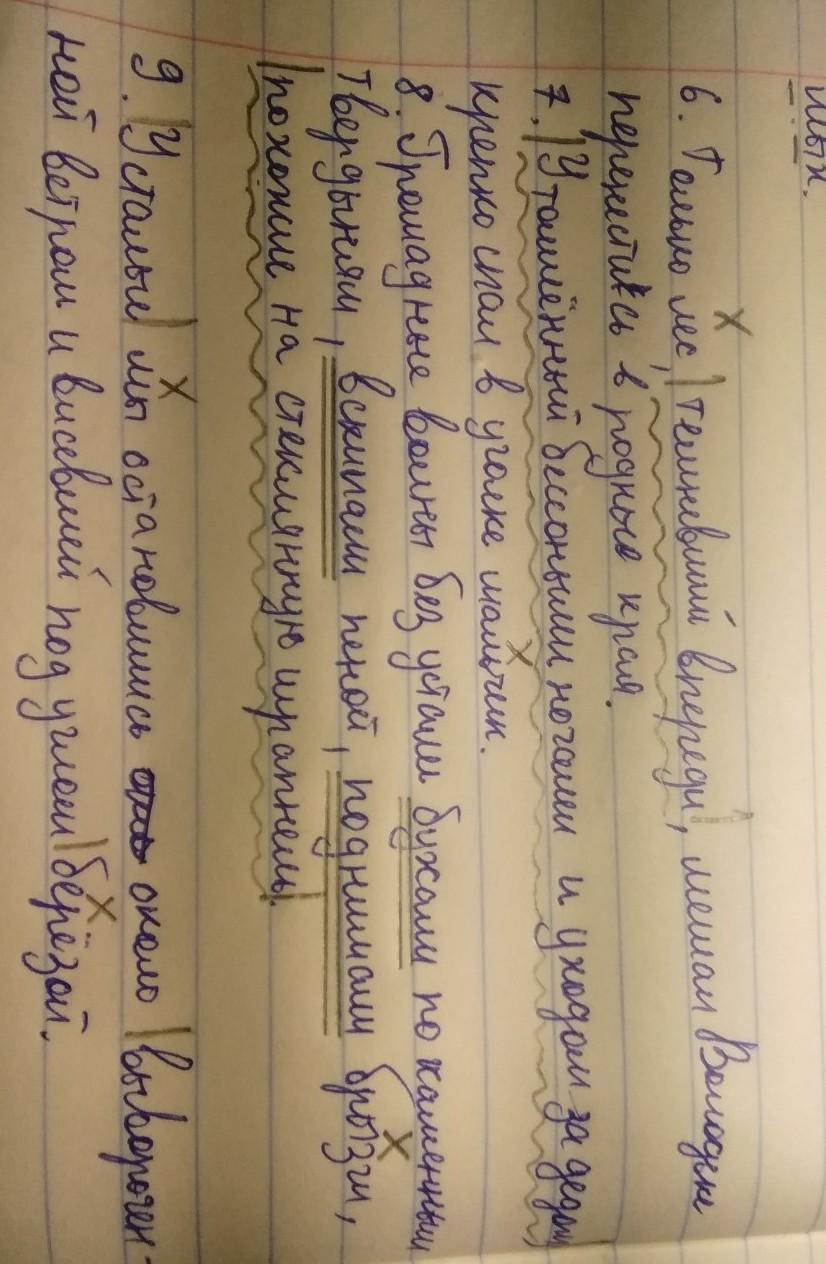 ных.
6. Только лес, темневший впереди, мешал Володьке
перенестись в родные края.
7. Утомлённый бессоными ночами и уходом за дедом,
крепко спал в уголке мальчик.
8. Громадные волны без устали бухали по каменным
твердыням, вскипали пеной, поднимали брызги,
похожие на стеклянную шрапнель.
9. Усталые мы остановились около выворочен-
ной ветром и висевшей под углом берёзой.